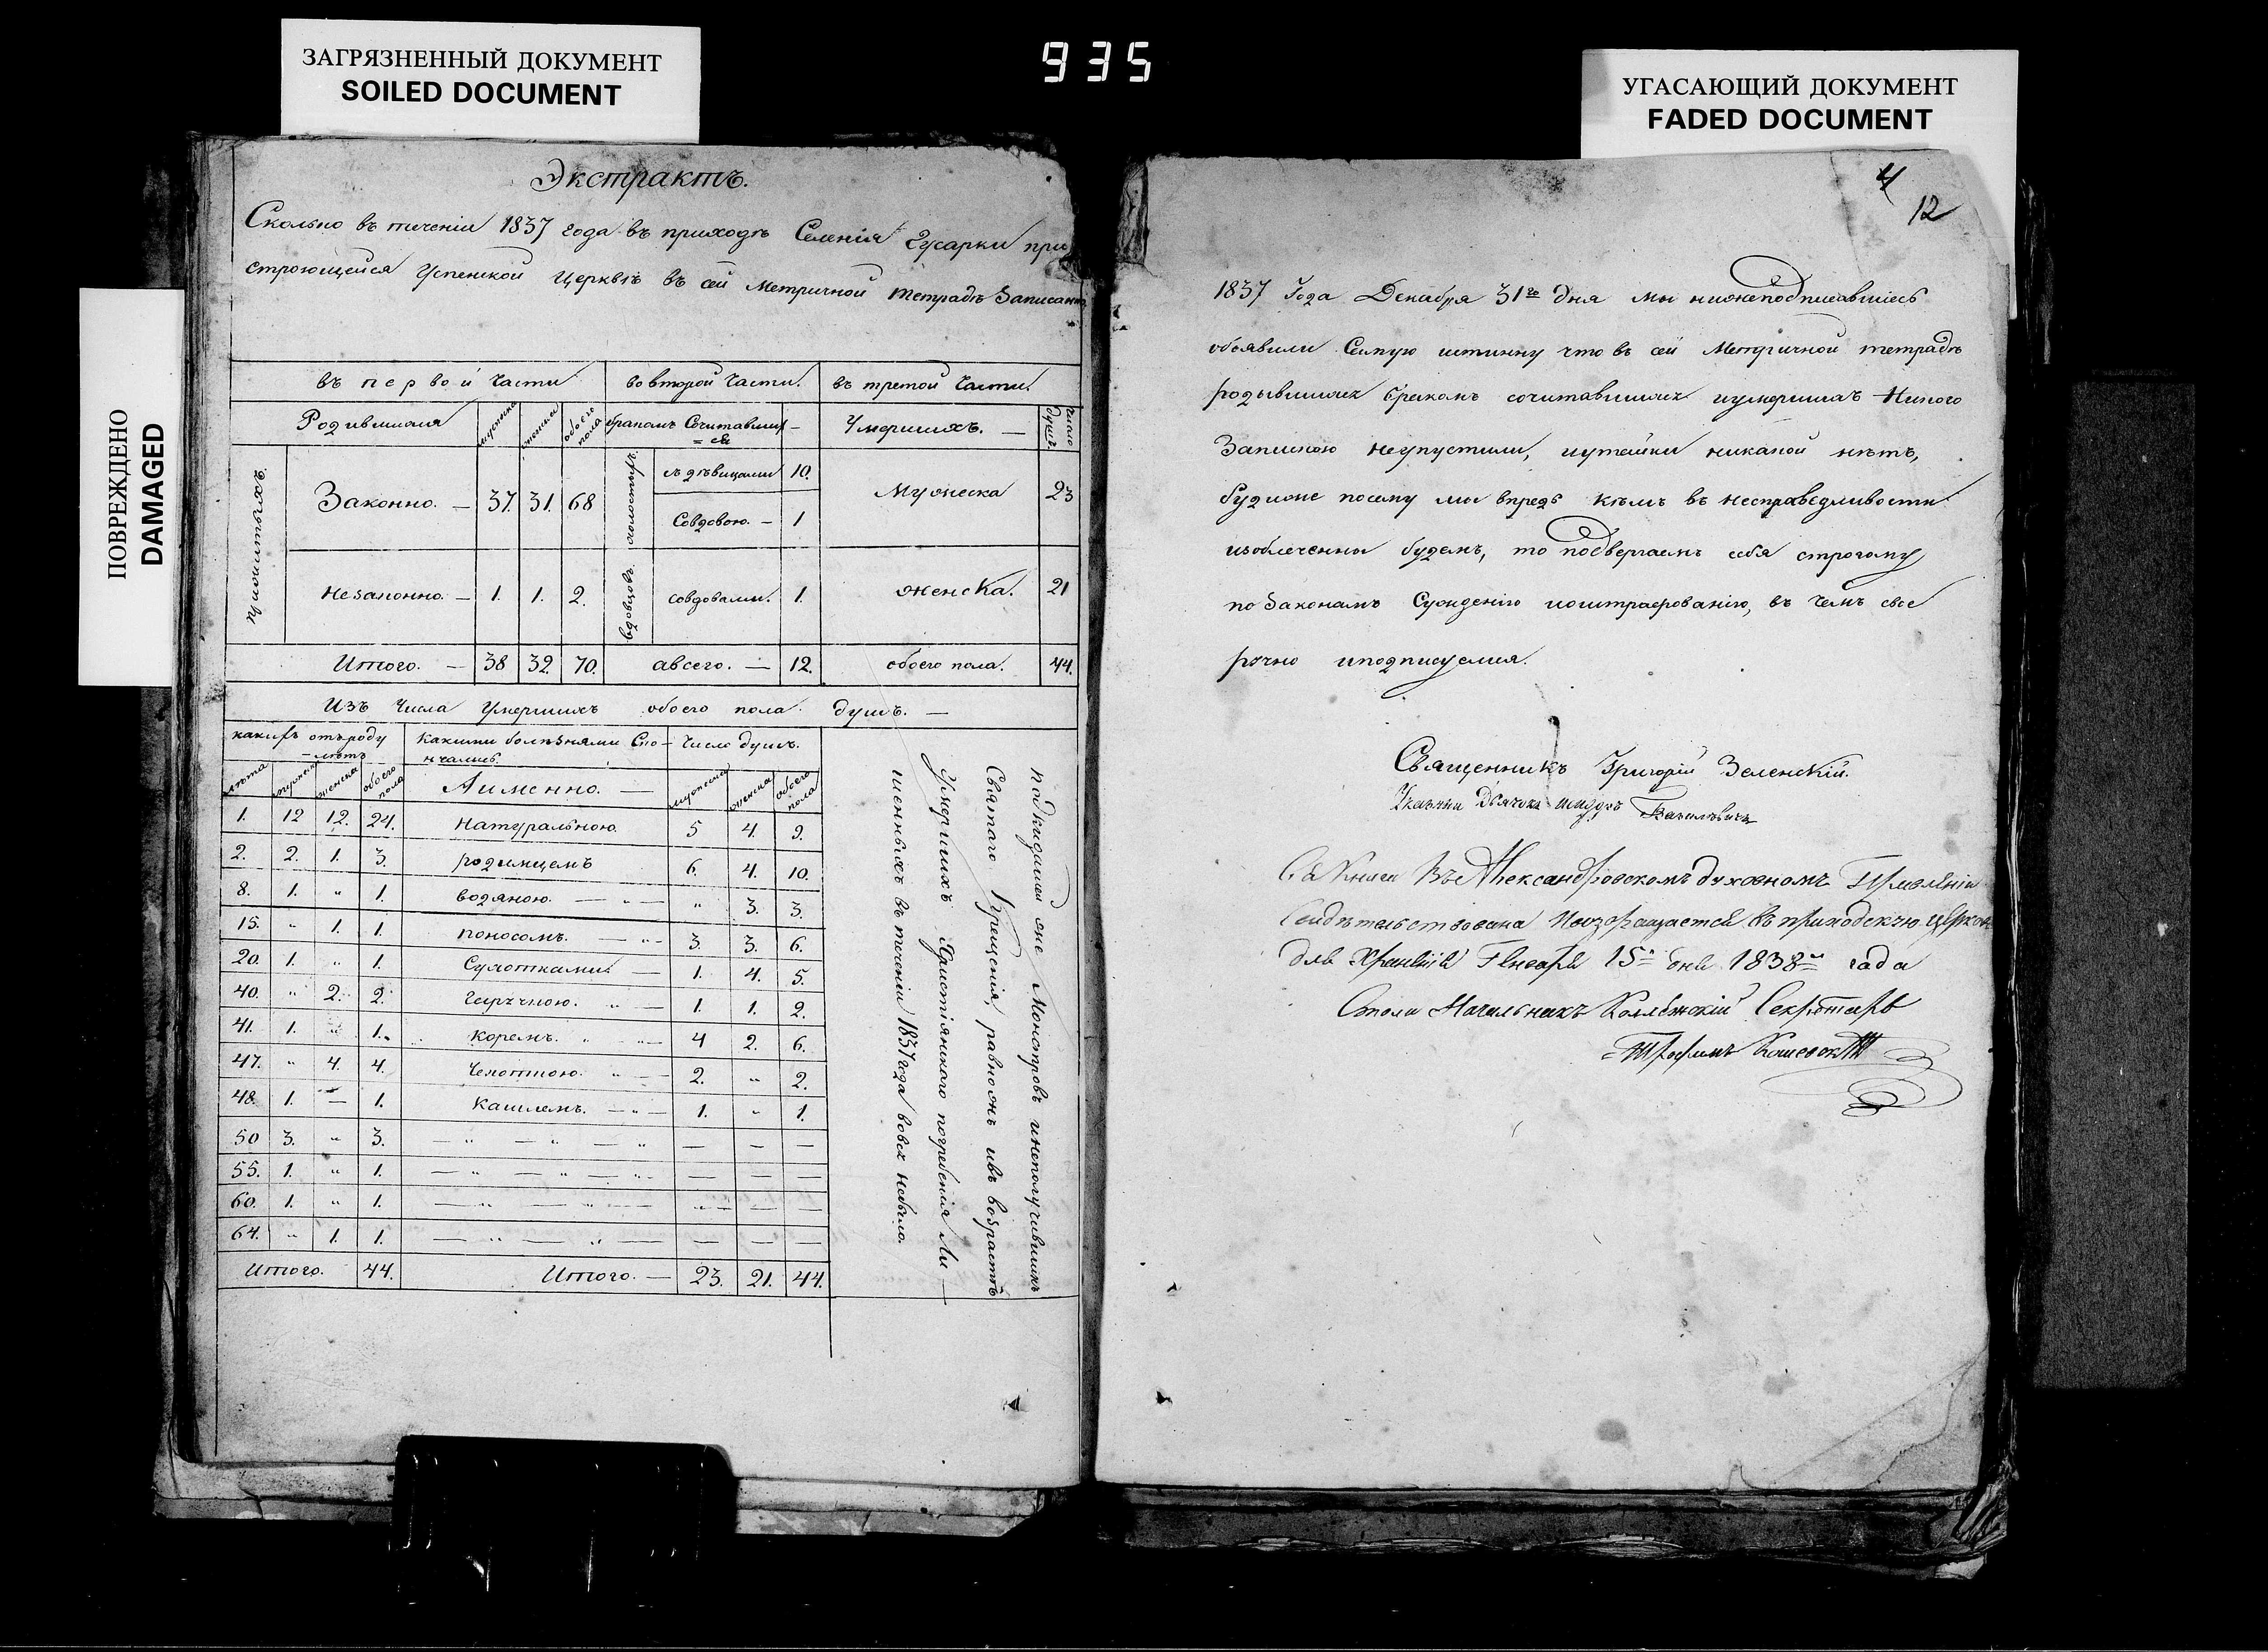 ЗАГРЯЗНЕННЫЙ ДОКУМЕНТ
SOILED DOCUMENT
935
УГАСАЮЩИЙ ДОКУМЕНТ
FADED DOCUMENT
ПОВРЕЖДЕНО
DAMAGED
Экстрактъ.
Сколько въ теченіи 1837 года въ приходѣ Селенія Гусарки при
строющейся Успенской Церквѣ въ сей Метричной тетрадѣ Записано
въ первой Части во второй Части. въ третой Части.
Родившихся мужеска женска обоего пола бракомъ Сочитавших= ся Умершихъ. — Число душъ
Прижитыхъ.
Законно. — 37. 31. 68 холостыхъ. съ дѣвицами 10. Мужеска 23
Совдовою. — 1
Незаконно. — 1. 1. 2. вдовцовъ. совдовами. 1. женска. 21
Итого. — 38 32. 70. авсего. — 12. обоего пола. 44.
Изъ Числа Умершихъ обоего пола душъ. —
какихъ отъ роду лѣтъ Какими болѣзнями Ско= нчались. Число душъ.
лѣта мужеска женска обоего пола Аименно. — мужеска женска обоего пола
1. 12 12. 24. Натуральною. 5 4. 9.
2. 2. 1. 3. родимцемъ 6. 4. 10.
8. 1. „ 1. водяною. — „ — „ 3. 3.
15. „ 1. 1. поносомъ. — „ — 3. 3. 6.
20. 1. „ 1. Сухотками. — 1. 4. 5.
40. „ 2. 2. горячкою. „ — 1. 1. 2.
41. 1. „ 1. коремъ. „ „ — 4 2. 6.
47. „ 4. 4. Чехоткою. „ — 2. „ 2.
48. 1. — 1. Кашлемъ. — „ — 1. „ 1.
50 3. „ 3. — „ — „ — „ — — —
55. 1. „ 1. — „ — „ — „ — — —
60. 1. „ 1. — „ — „ — — — —
64. „ 1. 1. — „ — „ — — — —
Итого. 44. Итого. — 23. 21. 44.
Подкидышей же Монстровъ инеполучившихъ
Святаго Крещенія, равножъ ивъ возрастѣ
Умершихъ Христіянскаго погребенія Ли —
шенныхъ въ теченіи 1837 года вовсе небыло.
4
12
1837 Года Декабря 31го Дня мы нижеподписавшіесь
объявили Самую истинну что въ сей Метричной тетрадѣ
родывшихся бракомъ сочитавшихся иумершихъ Никого
Запискою неупустили, иутайки никакой нѣтъ,
будиже посему мы впредь кѣмъ въ несправедливости
изобличенны будемъ, то подвергаемъ себя строгому
по Законамъ Сужденію иоштрафованію, въ чемъ свое
ручно иподписуемся.
Священникъ Григорій Зеленскій.
Дьячокъ
Сія Книга Въ Александровскомъ духовномъ Правленіи
Свидѣтельствована И возвращается въ приходскую церковь
для Храненія Генваря 15го дня 1838го года
Стола Начальникъ Коллежскій Секретарь
Трофимъ